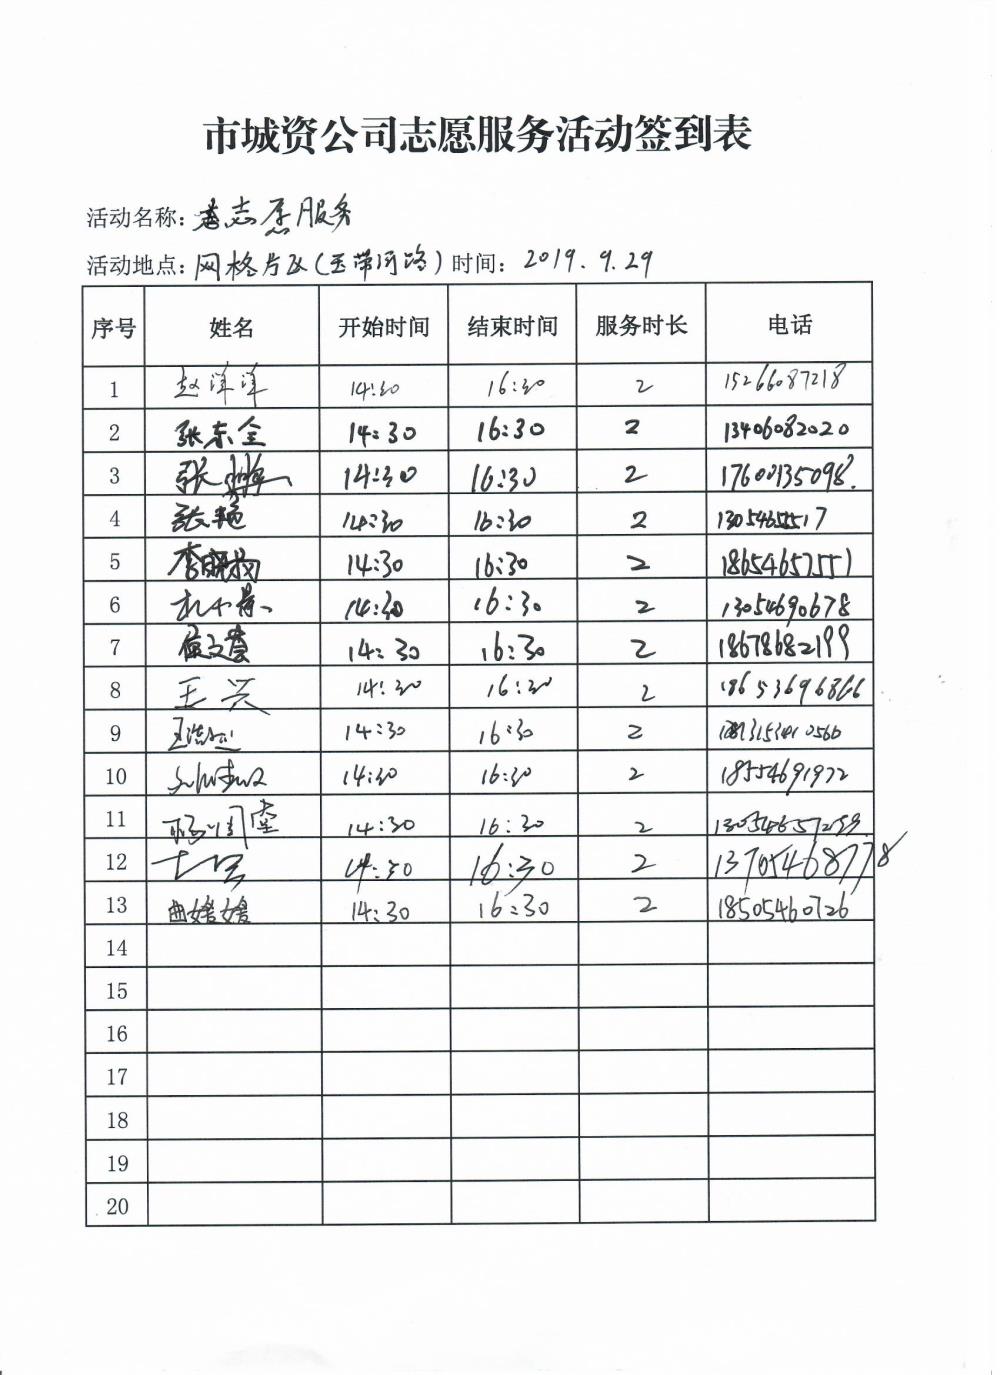 市城资公司志愿服务活动签到表
活动名称: 志愿服务
活动地点: 网格片区(玉带河路) 时间: 2019.9.29
序号 姓名 开始时间 结束时间 服务时长 电话
1 赵洋洋 14:30 16:30 2 15266087218
2 张东全 14:30 16:30 2 13406082020
3 张 14:30 16:30 2 17600135098
4 张艳 14:30 16:30 2
5 李 14:30 16:30 2 18654657551
6 14:30 16:30 2 13054690678
7 14:30 16:30 2 18678682199
8 王兴 14:30 16:30 2 18653696866
9 王浩 14:30 16:30 2
10 14:30 16:30 2 18554691972
11 杨 14:30 16:30 2 13054657259
12 14:30 16:30 2 13705468778
13 曲媛媛 14:30 16:30 2 18505460726
14
15
16
17
18
19
20